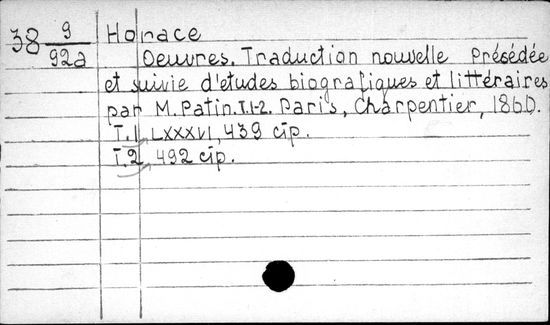 38 9/92a Horace
Oeuvres. Traduction nouvelle Présédée
et suivie d'etudes biografiques et littéraires
par M. Patin. T.1-2. Paris, Charpentier, 1860.
T.1, LXXXVI, 439 стр.
T.2, 492 стр.